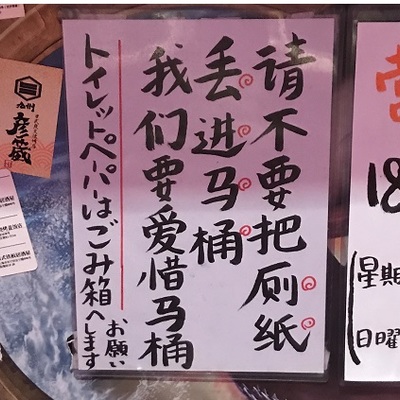 请不要把厕纸
丢进马桶
我们要爱惜马桶
トイレットペーパーはごみ箱へします
お願い
18
星期
日曜
九州
彦蔵